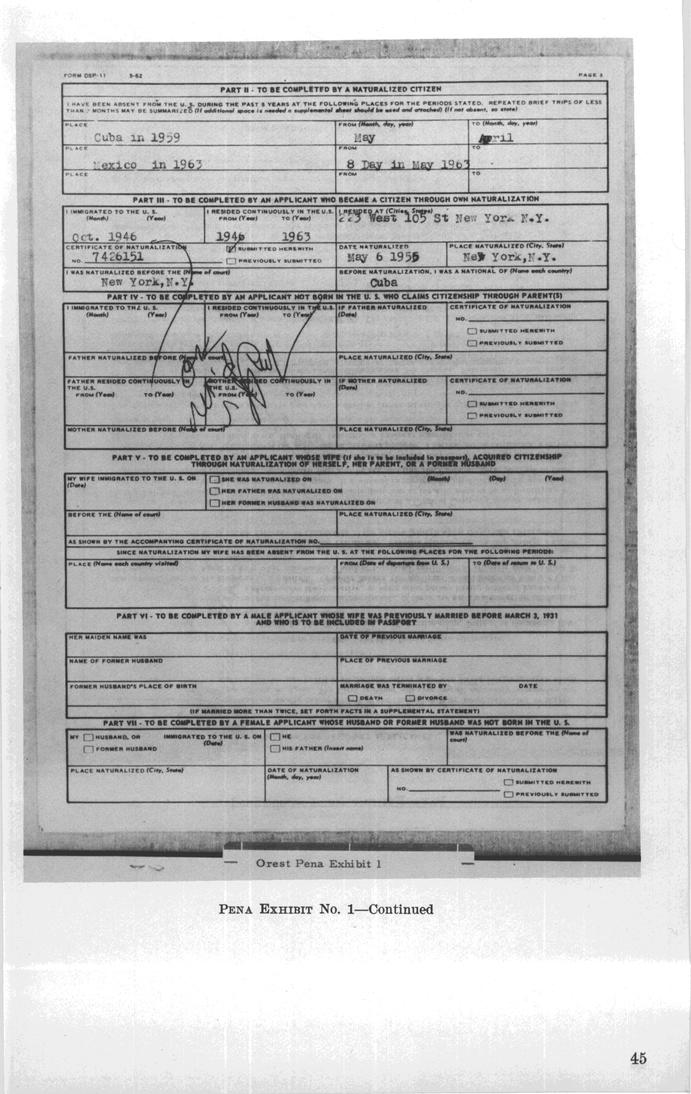 FORM DSP-11 5-62 PAGE 3
PART II - TO BE COMPLETED BY A NATURALIZED CITIZEN
I HAVE BEEN ABSENT FROM THE U. S. DURING THE PAST 5 YEARS AT THE FOLLOWING PLACES FOR THE PERIODS STATED. REPEATED BRIEF TRIPS OF LESS
THAN MONTHS MAY BE SUMMARIZED (If additional space is needed a supplemental sheet should be used and attached) (If not absent, so state)
PLACE FROM (Month, day, year) TO (Month, day, year)
Cuba in 1959 May April
PLACE FROM TO
Mexico in 1963 8 Day in May 1963
PLACE FROM TO
PART III - TO BE COMPLETED BY AN APPLICANT WHO BECAME A CITIZEN THROUGH OWN NATURALIZATION
I IMMIGRATED TO THE U. S. I RESIDED CONTINUOUSLY IN THE U.S. I RESIDED AT (Cities, States)
(Month) (Year) FROM (Year) TO (Year) 223 West 105 St New York N.Y.
Oct. 1946 1946 1963
CERTIFICATE OF NATURALIZATION SUBMITTED HEREWITH DATE NATURALIZED PLACE NATURALIZED (City, State)
NO. 7426151 PREVIOUSLY SUBMITTED May 6 1955 New York,N.Y.
I WAS NATURALIZED BEFORE THE (Name of court) BEFORE NATURALIZATION, I WAS A NATIONAL OF (Name each country)
New York,N.Y. Cuba
PART IV - TO BE COMPLETED BY AN APPLICANT NOT BORN IN THE U. S. WHO CLAIMS CITIZENSHIP THROUGH PARENT(S)
I IMMIGRATED TO THE U. S. I RESIDED CONTINUOUSLY IN THE U.S. IF FATHER NATURALIZED CERTIFICATE OF NATURALIZATION
(Month) (Year) FROM (Year) TO (Year) (Date)
NO.
SUBMITTED HEREWITH
PREVIOUSLY SUBMITTED
FATHER NATURALIZED BEFORE (Name of court) PLACE NATURALIZED (City, State)
FATHER RESIDED CONTINUOUSLY IN THE U.S. MOTHER RESIDED CONTINUOUSLY IN THE U.S. IF MOTHER NATURALIZED CERTIFICATE OF NATURALIZATION
FROM (Year) TO (Year) FROM (Year) TO (Year) (Date)
NO.
SUBMITTED HEREWITH
PREVIOUSLY SUBMITTED
MOTHER NATURALIZED BEFORE (Name of court) PLACE NATURALIZED (City, State)
PART V - TO BE COMPLETED BY AN APPLICANT WHOSE WIFE (if she is to be included in passport), ACQUIRED CITIZENSHIP
THROUGH NATURALIZATION OF HERSELF, HER PARENT, OR A FORMER HUSBAND
MY WIFE IMMIGRATED TO THE U. S. ON SHE WAS NATURALIZED ON (Month) (Day) (Year)
(Date)
HER FATHER WAS NATURALIZED ON
HER FORMER HUSBAND WAS NATURALIZED ON
BEFORE THE (Name of court) PLACE NATURALIZED (City, State)
AS SHOWN BY THE ACCOMPANYING CERTIFICATE OF NATURALIZATION NO.
SINCE NATURALIZATION MY WIFE HAS BEEN ABSENT FROM THE U. S. AT THE FOLLOWING PLACES FOR THE FOLLOWING PERIODS:
PLACE (Name each country visited) FROM (Date of departure from U. S.) TO (Date of return to U. S.)
PART VI - TO BE COMPLETED BY A MALE APPLICANT WHOSE WIFE WAS PREVIOUSLY MARRIED BEFORE MARCH 3, 1931
AND WHO IS TO BE INCLUDED IN PASSPORT
HER MAIDEN NAME WAS DATE OF PREVIOUS MARRIAGE
NAME OF FORMER HUSBAND PLACE OF PREVIOUS MARRIAGE
FORMER HUSBAND'S PLACE OF BIRTH MARRIAGE WAS TERMINATED BY DATE
DEATH DIVORCE
(IF MARRIED MORE THAN TWICE, SET FORTH FACTS IN A SUPPLEMENTAL STATEMENT)
PART VII - TO BE COMPLETED BY A FEMALE APPLICANT WHOSE HUSBAND OR FORMER HUSBAND WAS NOT BORN IN THE U. S.
MY HUSBAND, OR IMMIGRATED TO THE U. S. ON HE WAS NATURALIZED BEFORE THE (Name of court)
FORMER HUSBAND (Date) HIS FATHER (Insert name)
PLACE NATURALIZED (City, State) DATE OF NATURALIZATION AS SHOWN BY CERTIFICATE OF NATURALIZATION
(Month, day, year)
SUBMITTED HEREWITH
NO. PREVIOUSLY SUBMITTED
Orest Pena Exhibit 1
PENA EXHIBIT NO. 1—Continued
45